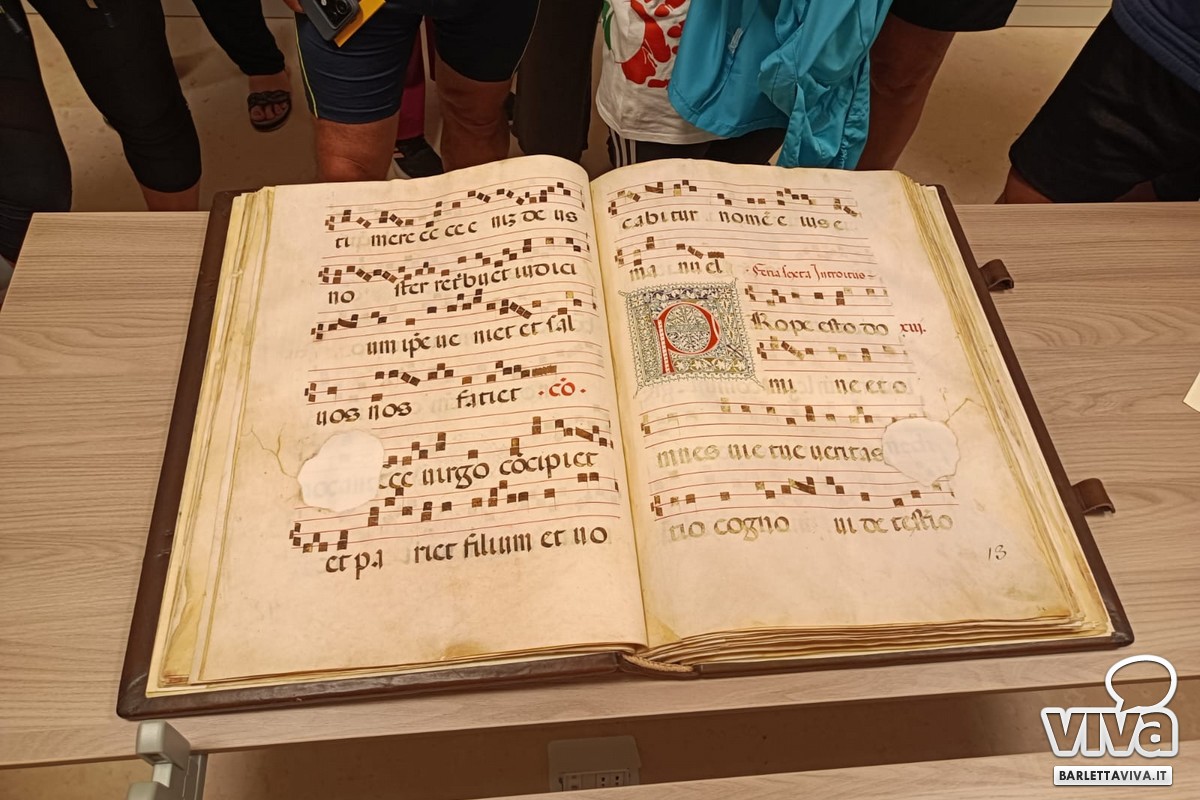 tu mere ec ce c niz de us
no ster retribuet iudici
um ipe ue niet et sal
nos nos faciet · cō ·
cce uirgo cōcipiet
et pa riet filium et no
cabitur nomē e ius e
ma nu el · Feria sexta Introitus
Rope esto do xiij.
mi ne et o
mnes uie tue ueritas
tio cogno ui de testīo
13
VIVA
BARLETTAVIVA.IT